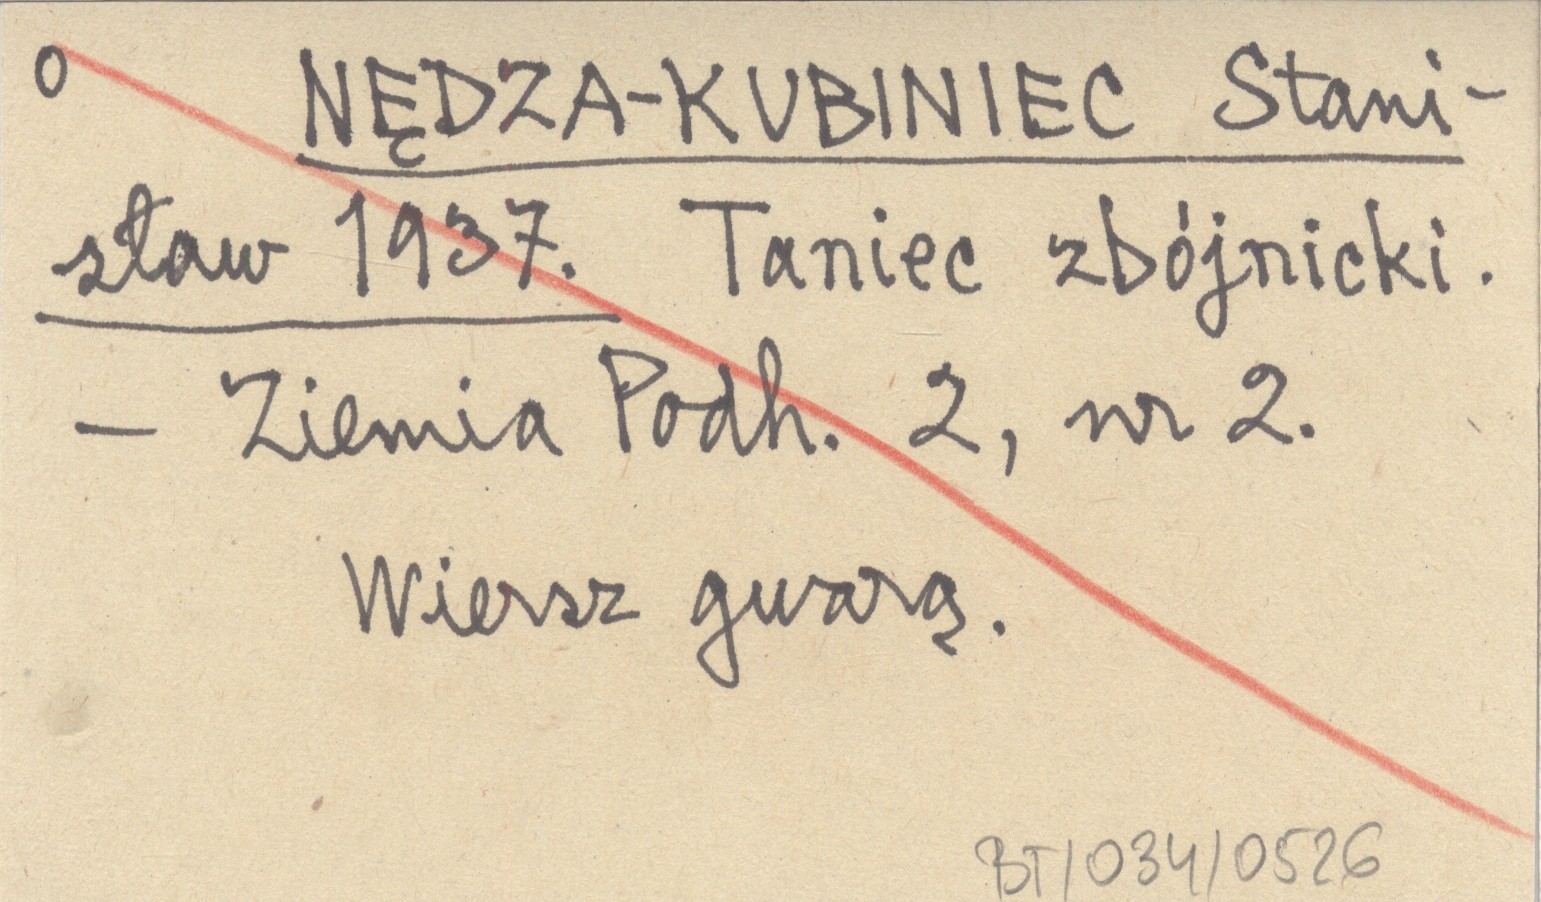 0 NĘDZA-KUBINIEC Stani-
sław 1937. Taniec zbójnicki.
– Ziemia Podh. 2, nr 2.
Wiersz gwarą.
BT/034/0526